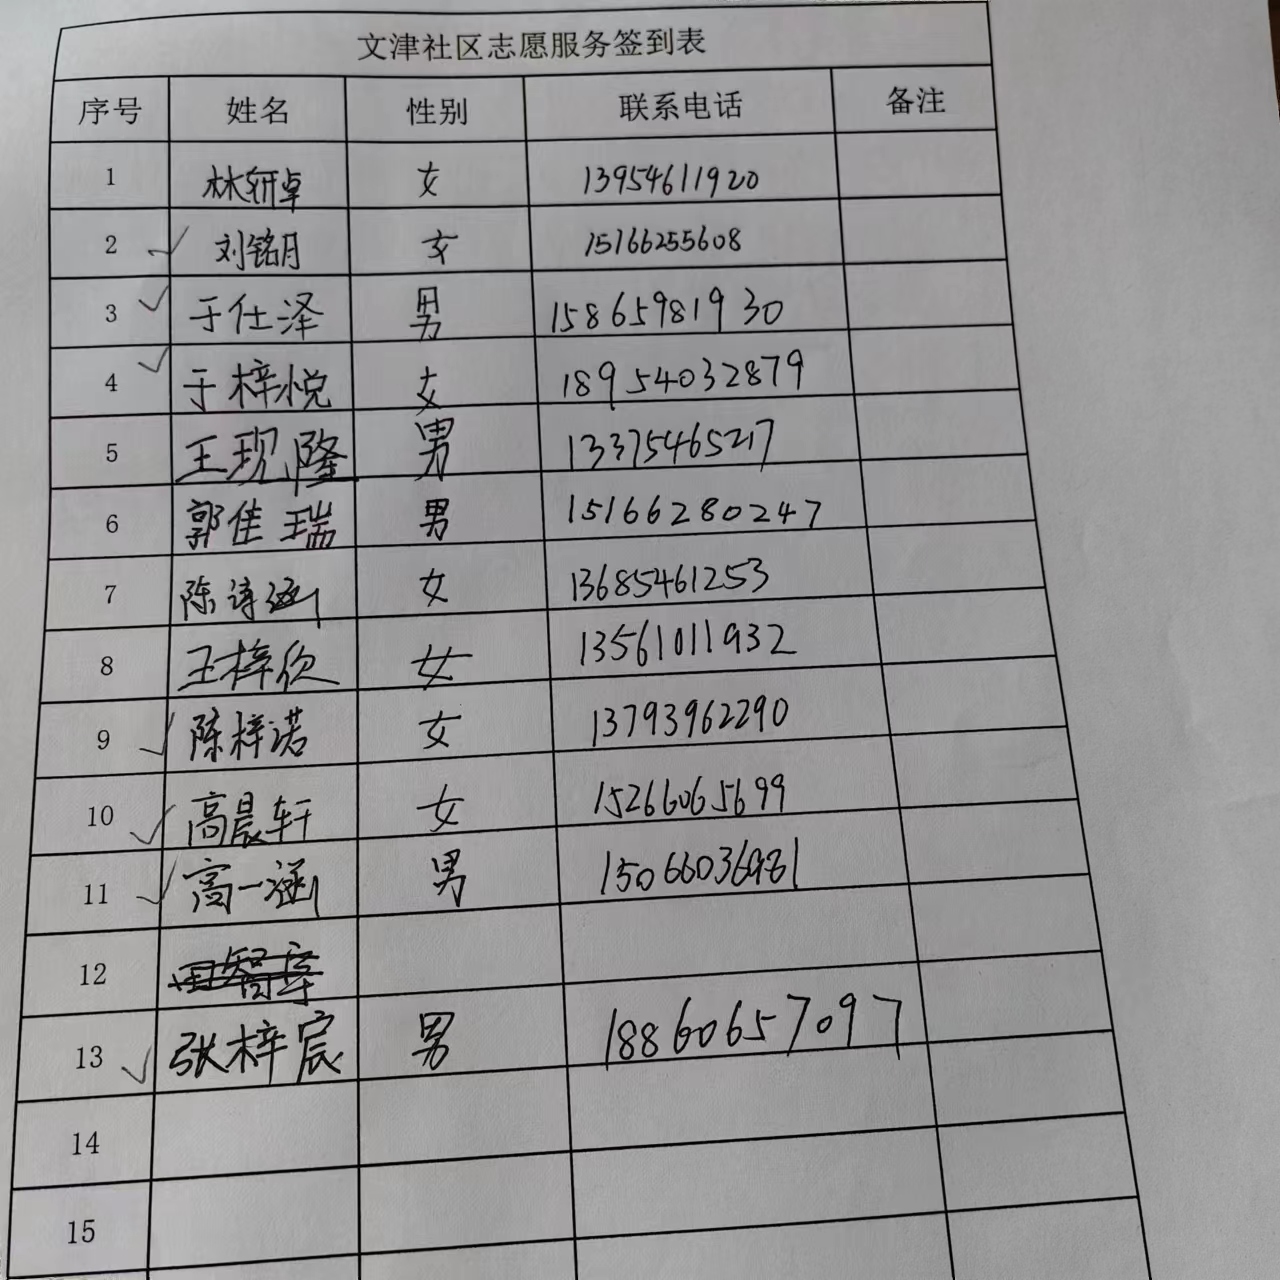 文津社区志愿服务签到表
序号 姓名 性别 联系电话 备注
1 林妍卓 女 13954611920
2 刘铭月 女 15166255608
3 于仕泽 男 15865981930
4 于梓悦 女 18954032879
5 王现隆 男 13375465217
6 郭佳瑞 男 15166280247
7 陈诗涵 女 13685461253
8 王梓欣 女 13561011932
9 陈梓诺 女 13793962290
10 高晨轩 女 15266065699
11 高一涵 男
12
13 张梓宸 男 18860657097
14
15